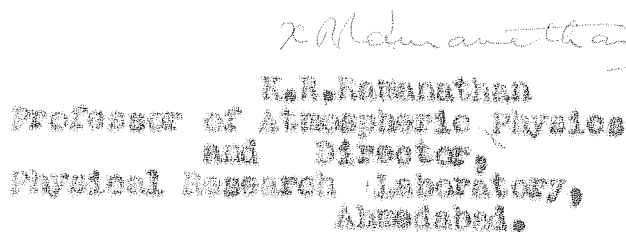 K R Ramanathan
K.R.Ramanathan
Professor of Atmospheric Physics
and Director,
Physical Research Laboratory,
Ahmedabad.